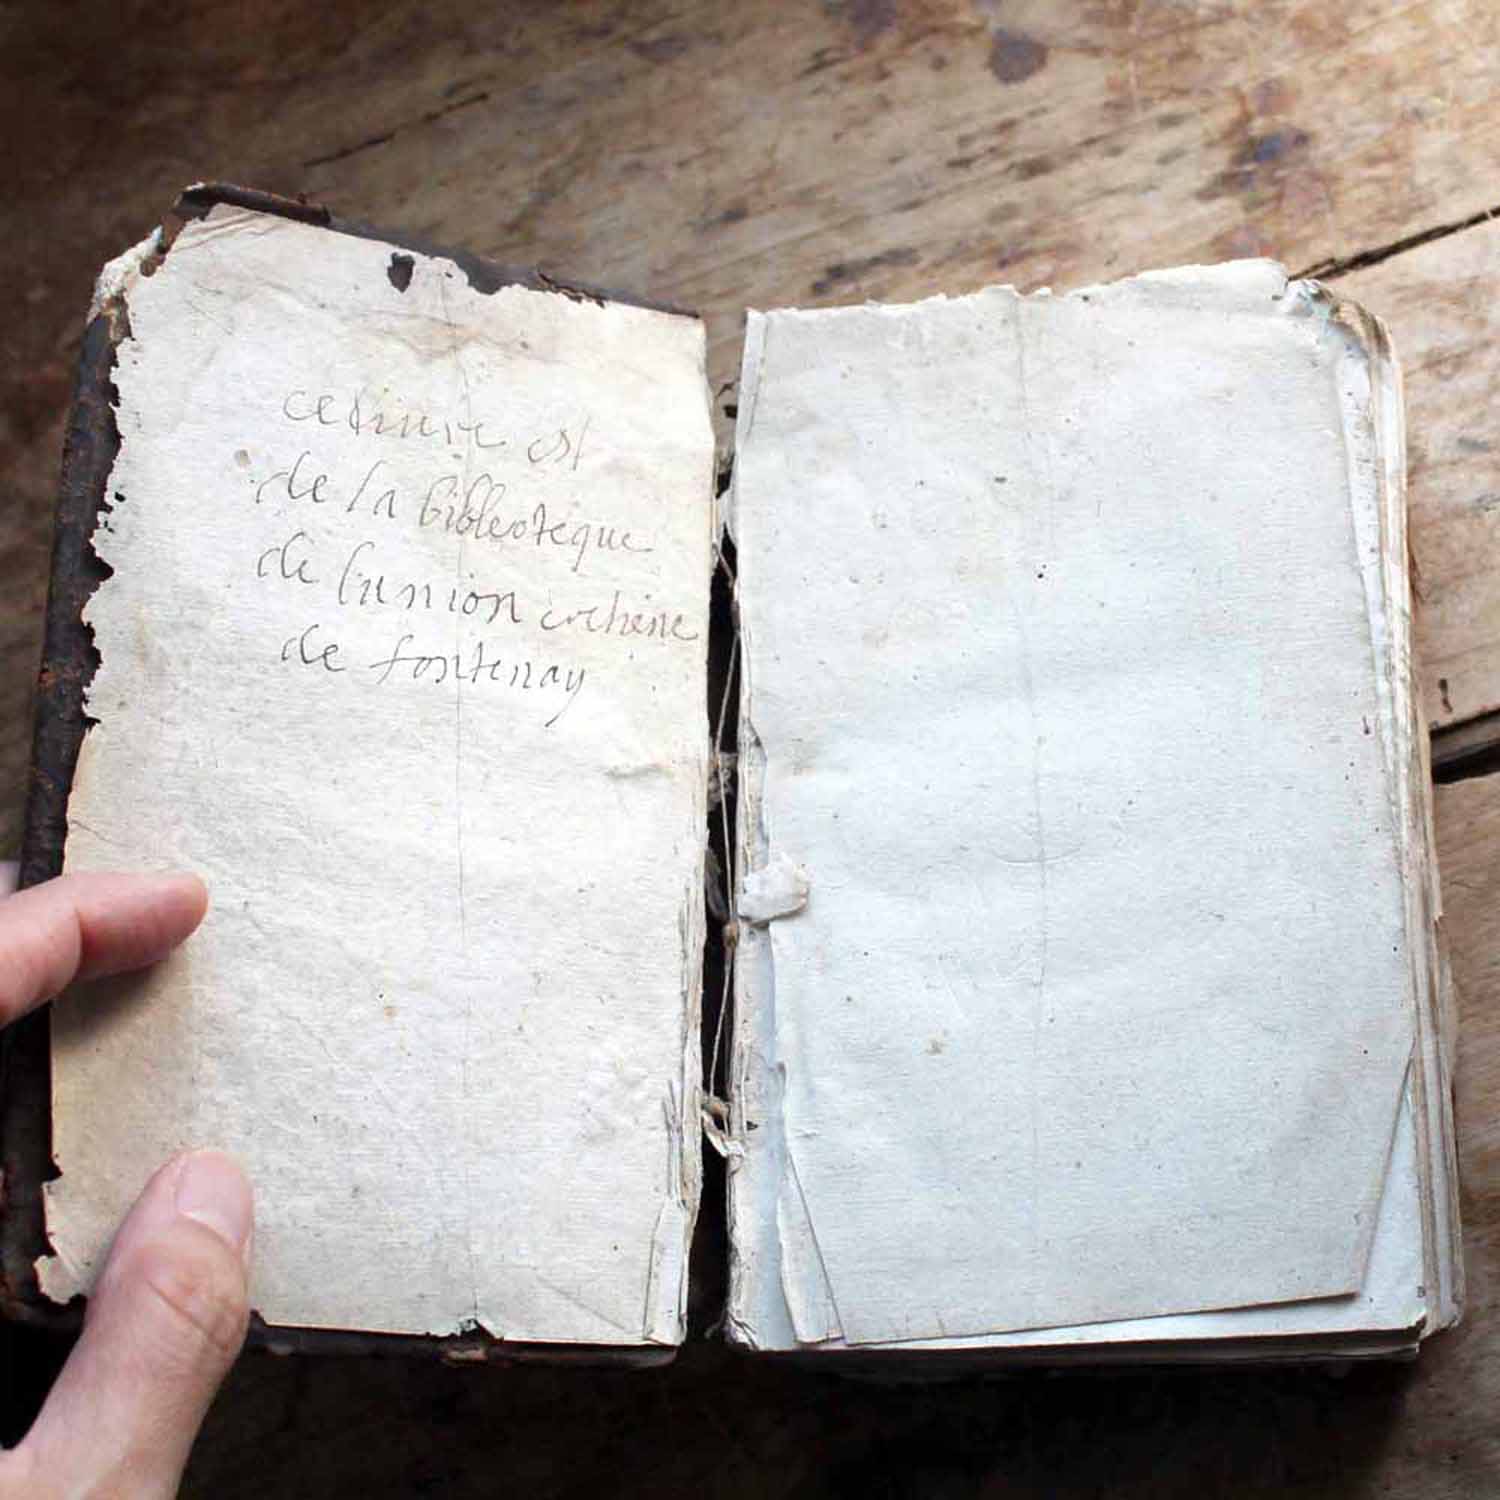 ce livre est
de la bibleoteque
de lunion
de fontenay